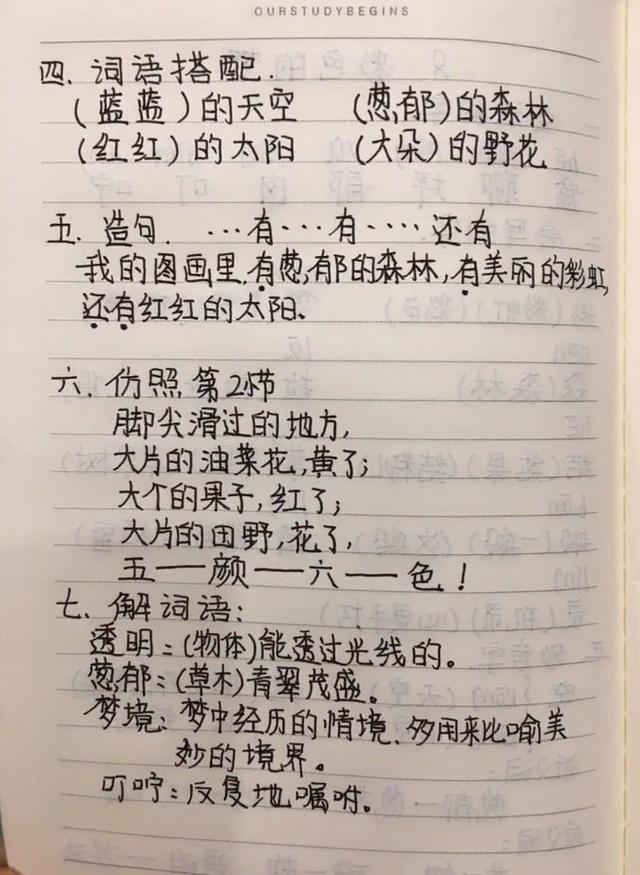 OURSTUDYBEGINS
四、词语搭配.
(蓝蓝)的天空 (葱郁)的森林
(红红)的太阳 (大朵)的野花
五、造句. …有…有…·还有
我的图画里,有葱郁的森林,有美丽的彩虹,
还有红红的太阳.
六、仿照第2节
脚尖滑过的地方,
大片的油菜花,黄了;
大个的果子,红了;
大片的田野,花了,
五——颜——六——色!
七、解词语:
透明:(物体)能透过光线的。
葱郁:(草木)青翠茂盛。
梦境:梦中经历的情境、多用来比喻美
妙的境界。
叮咛:反复地嘱咐。